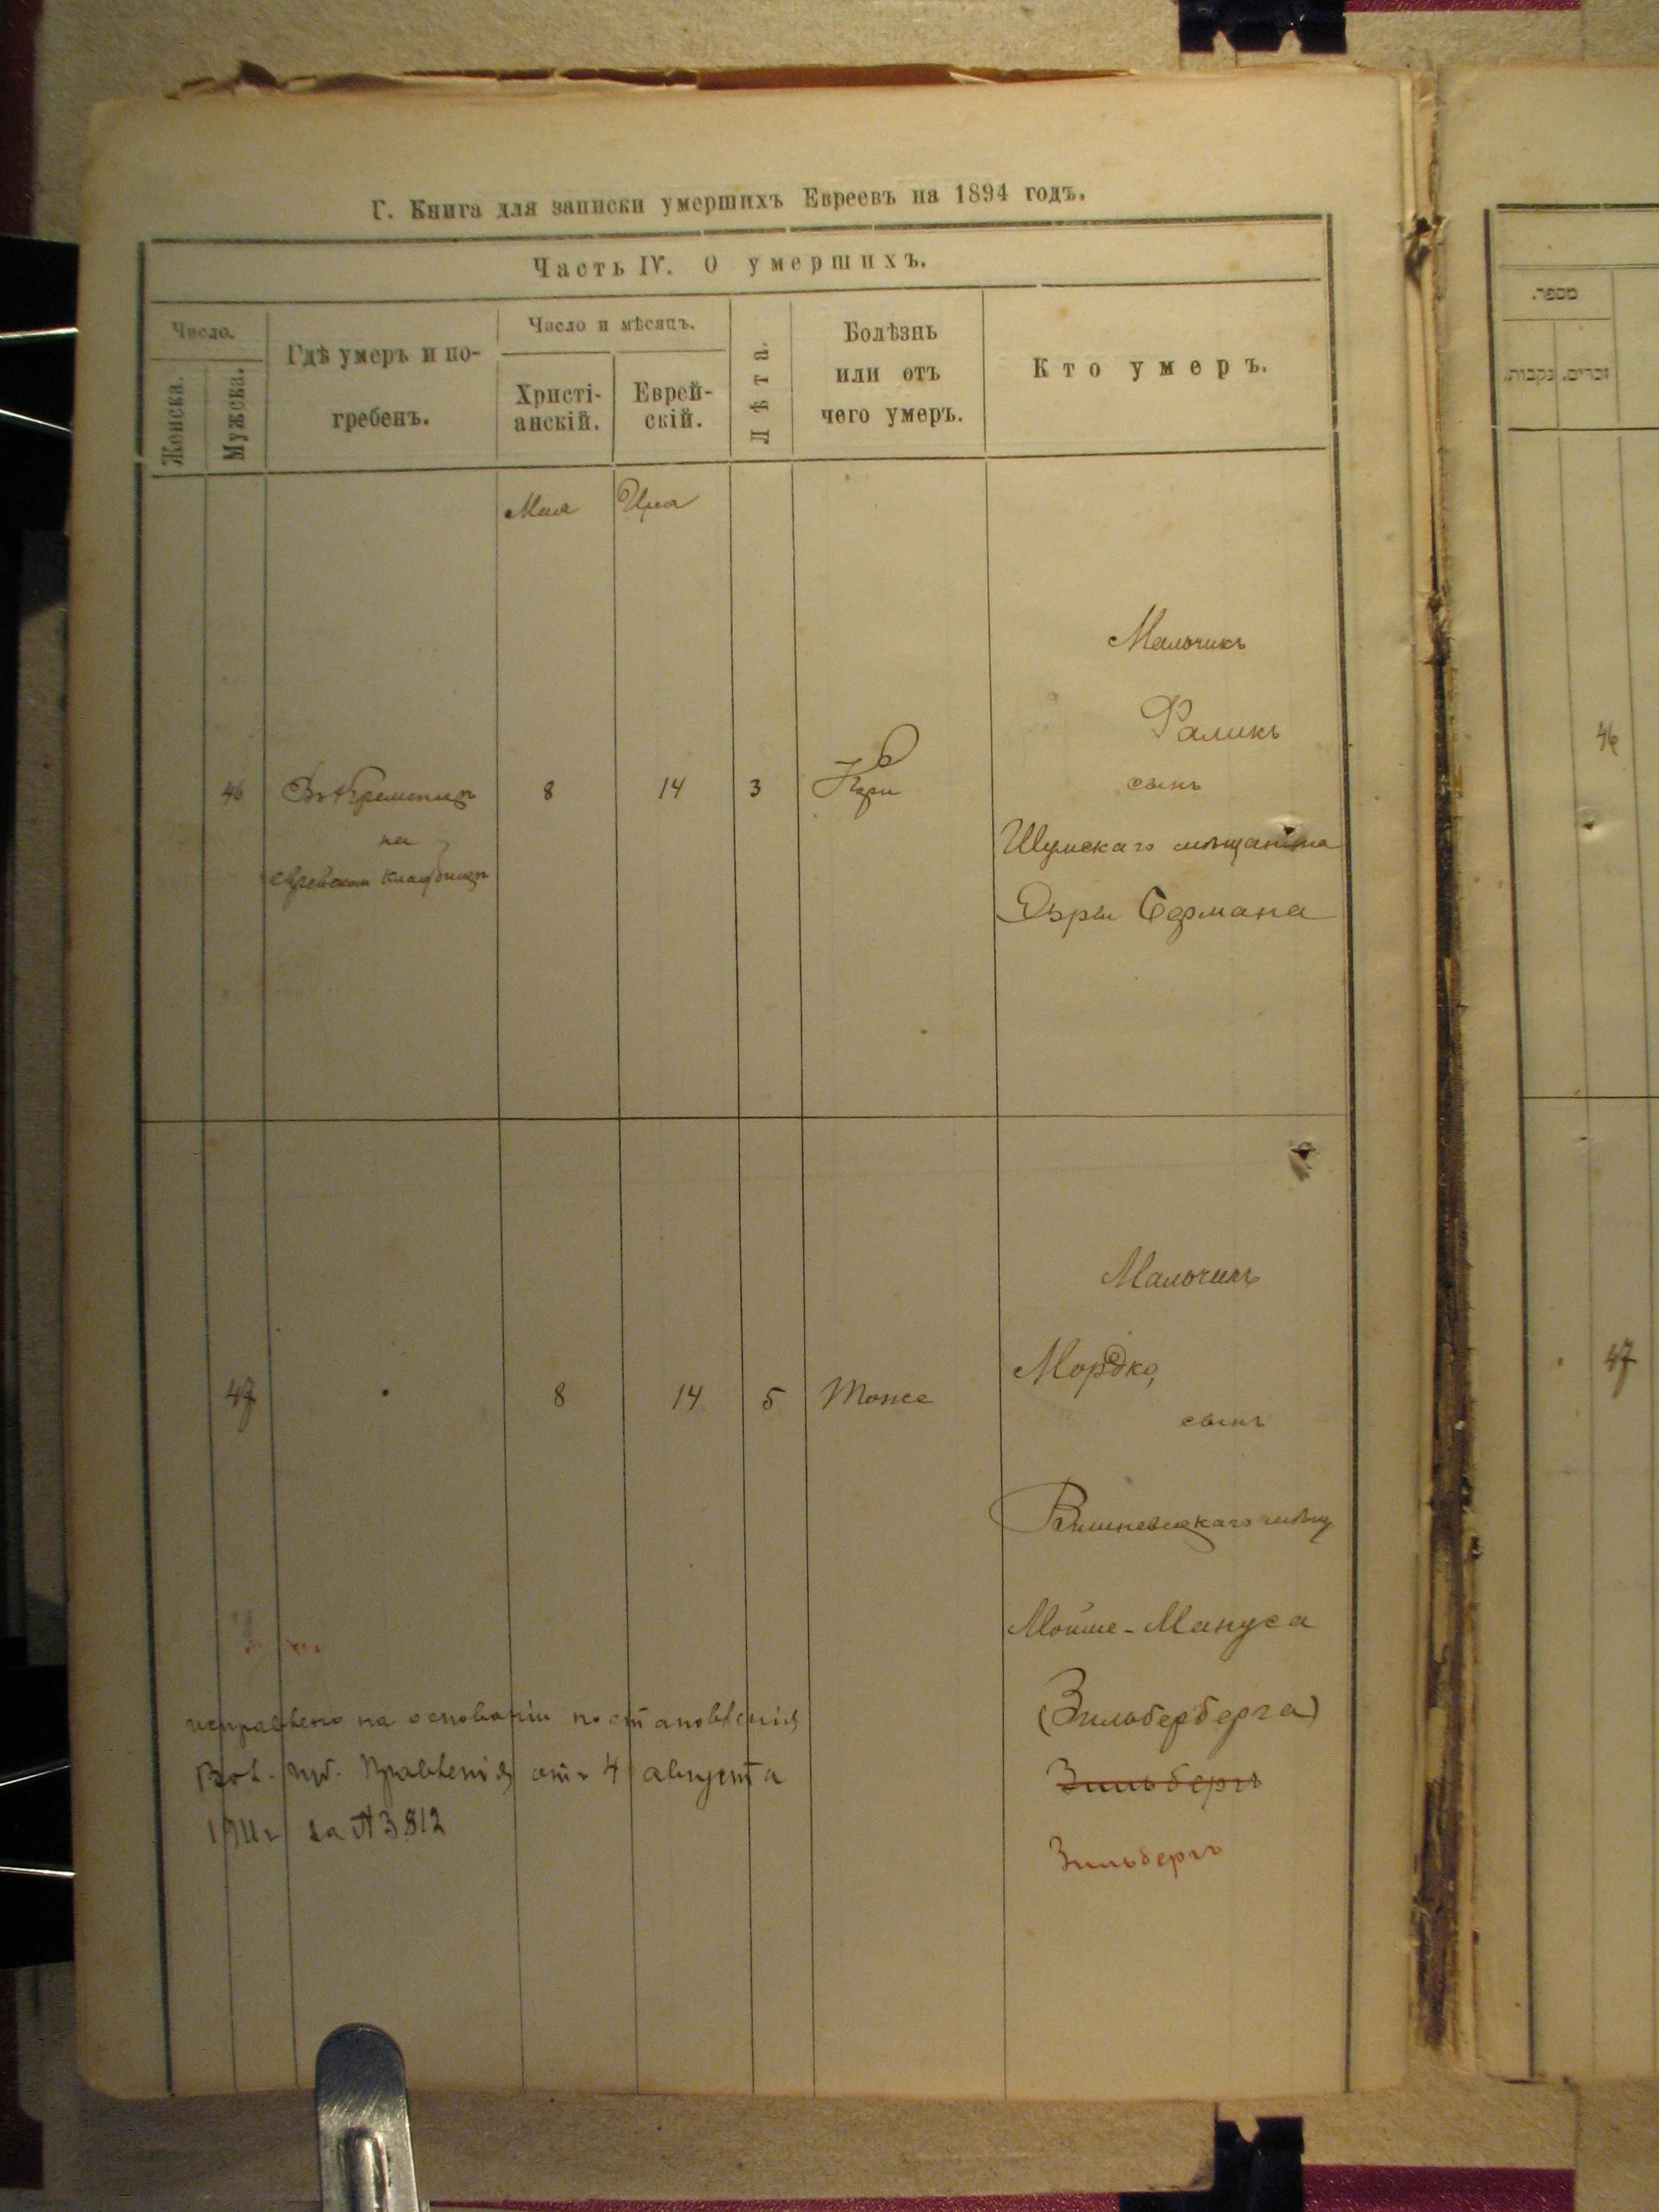 Г. Книга для записки умершихъ Евреевъ на 1894 годъ.
Часть IV. О умершихъ.
Число.
Женска.
Мужска.
Гдѣ умеръ и по-
гребенъ.
Число и мѣсяцъ.
Христі-
анскій.
Еврей-
скій.
Лѣта.
Болѣзнь
или отъ
чего умеръ.
Кто умеръ.
Мая
Ира
46
Въ Кременцѣ
на
еврейском кладбищѣ
8
14
3
Кори
Мальчикъ
Фаликъ
сынъ
Шумскаго мѣщанина
Бермана
47
8
14
5
Тоже
Мальчикъ
Мордко,
сынъ
Вишневецкаго мѣщ
Мойше-Мануса
(Зильберберга)
Зильбергъ
Зильбергъ
исправлено на основаніи постановленія
Вол. Губ. Правленія отъ 4 августа
1911 г за № 3812
מספר.
נקבות.
זכרים.
46
47